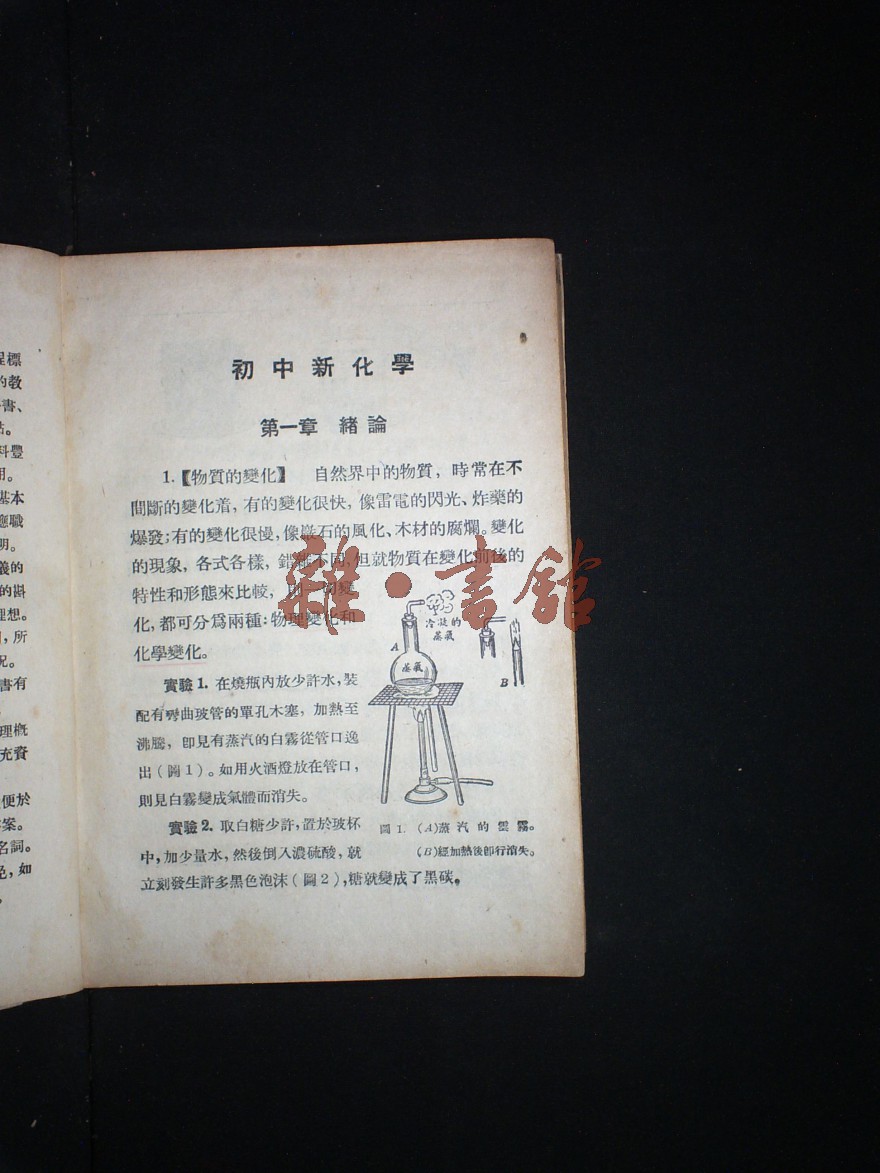 程標
的教
書、
點。
料豐
用。
基本
應職
明。
義的
的斟
理想。
所
況。
書有
理概
充實
便於
答案。
名詞。
色,如
初中新化學
第一章 緒論
1.【物質的變化】 自然界中的物質,時常在不
間斷的變化着,有的變化很快,像雷電的閃光、炸藥的
爆發;有的變化很慢,像巖石的風化、木材的腐爛。變化
的現象,各式各樣,錯雜不同,但就物質在變化前後的
特性和形態來比較,則一切變
化,都可分爲兩種:物理變化和
化學變化。
實驗1. 在燒瓶內放少許水,裝
配有彎曲玻管的單孔木塞,加熱至
沸騰,卽見有蒸汽的白霧從管口逸
出(圖1)。如用火酒燈放在管口,
則見白霧變成氣體而消失。
實驗2. 取白糖少許,置於玻杯
中,加少量水,然後倒入濃硫酸,就
立刻發生許多黑色泡沫(圖2),糖就變成了黑碳。
冷凝的
蒸氣
A
蒸氣
B
圖1. (A)蒸汽的雲霧。
(B)經加熱後卽行消失。
雜·書館